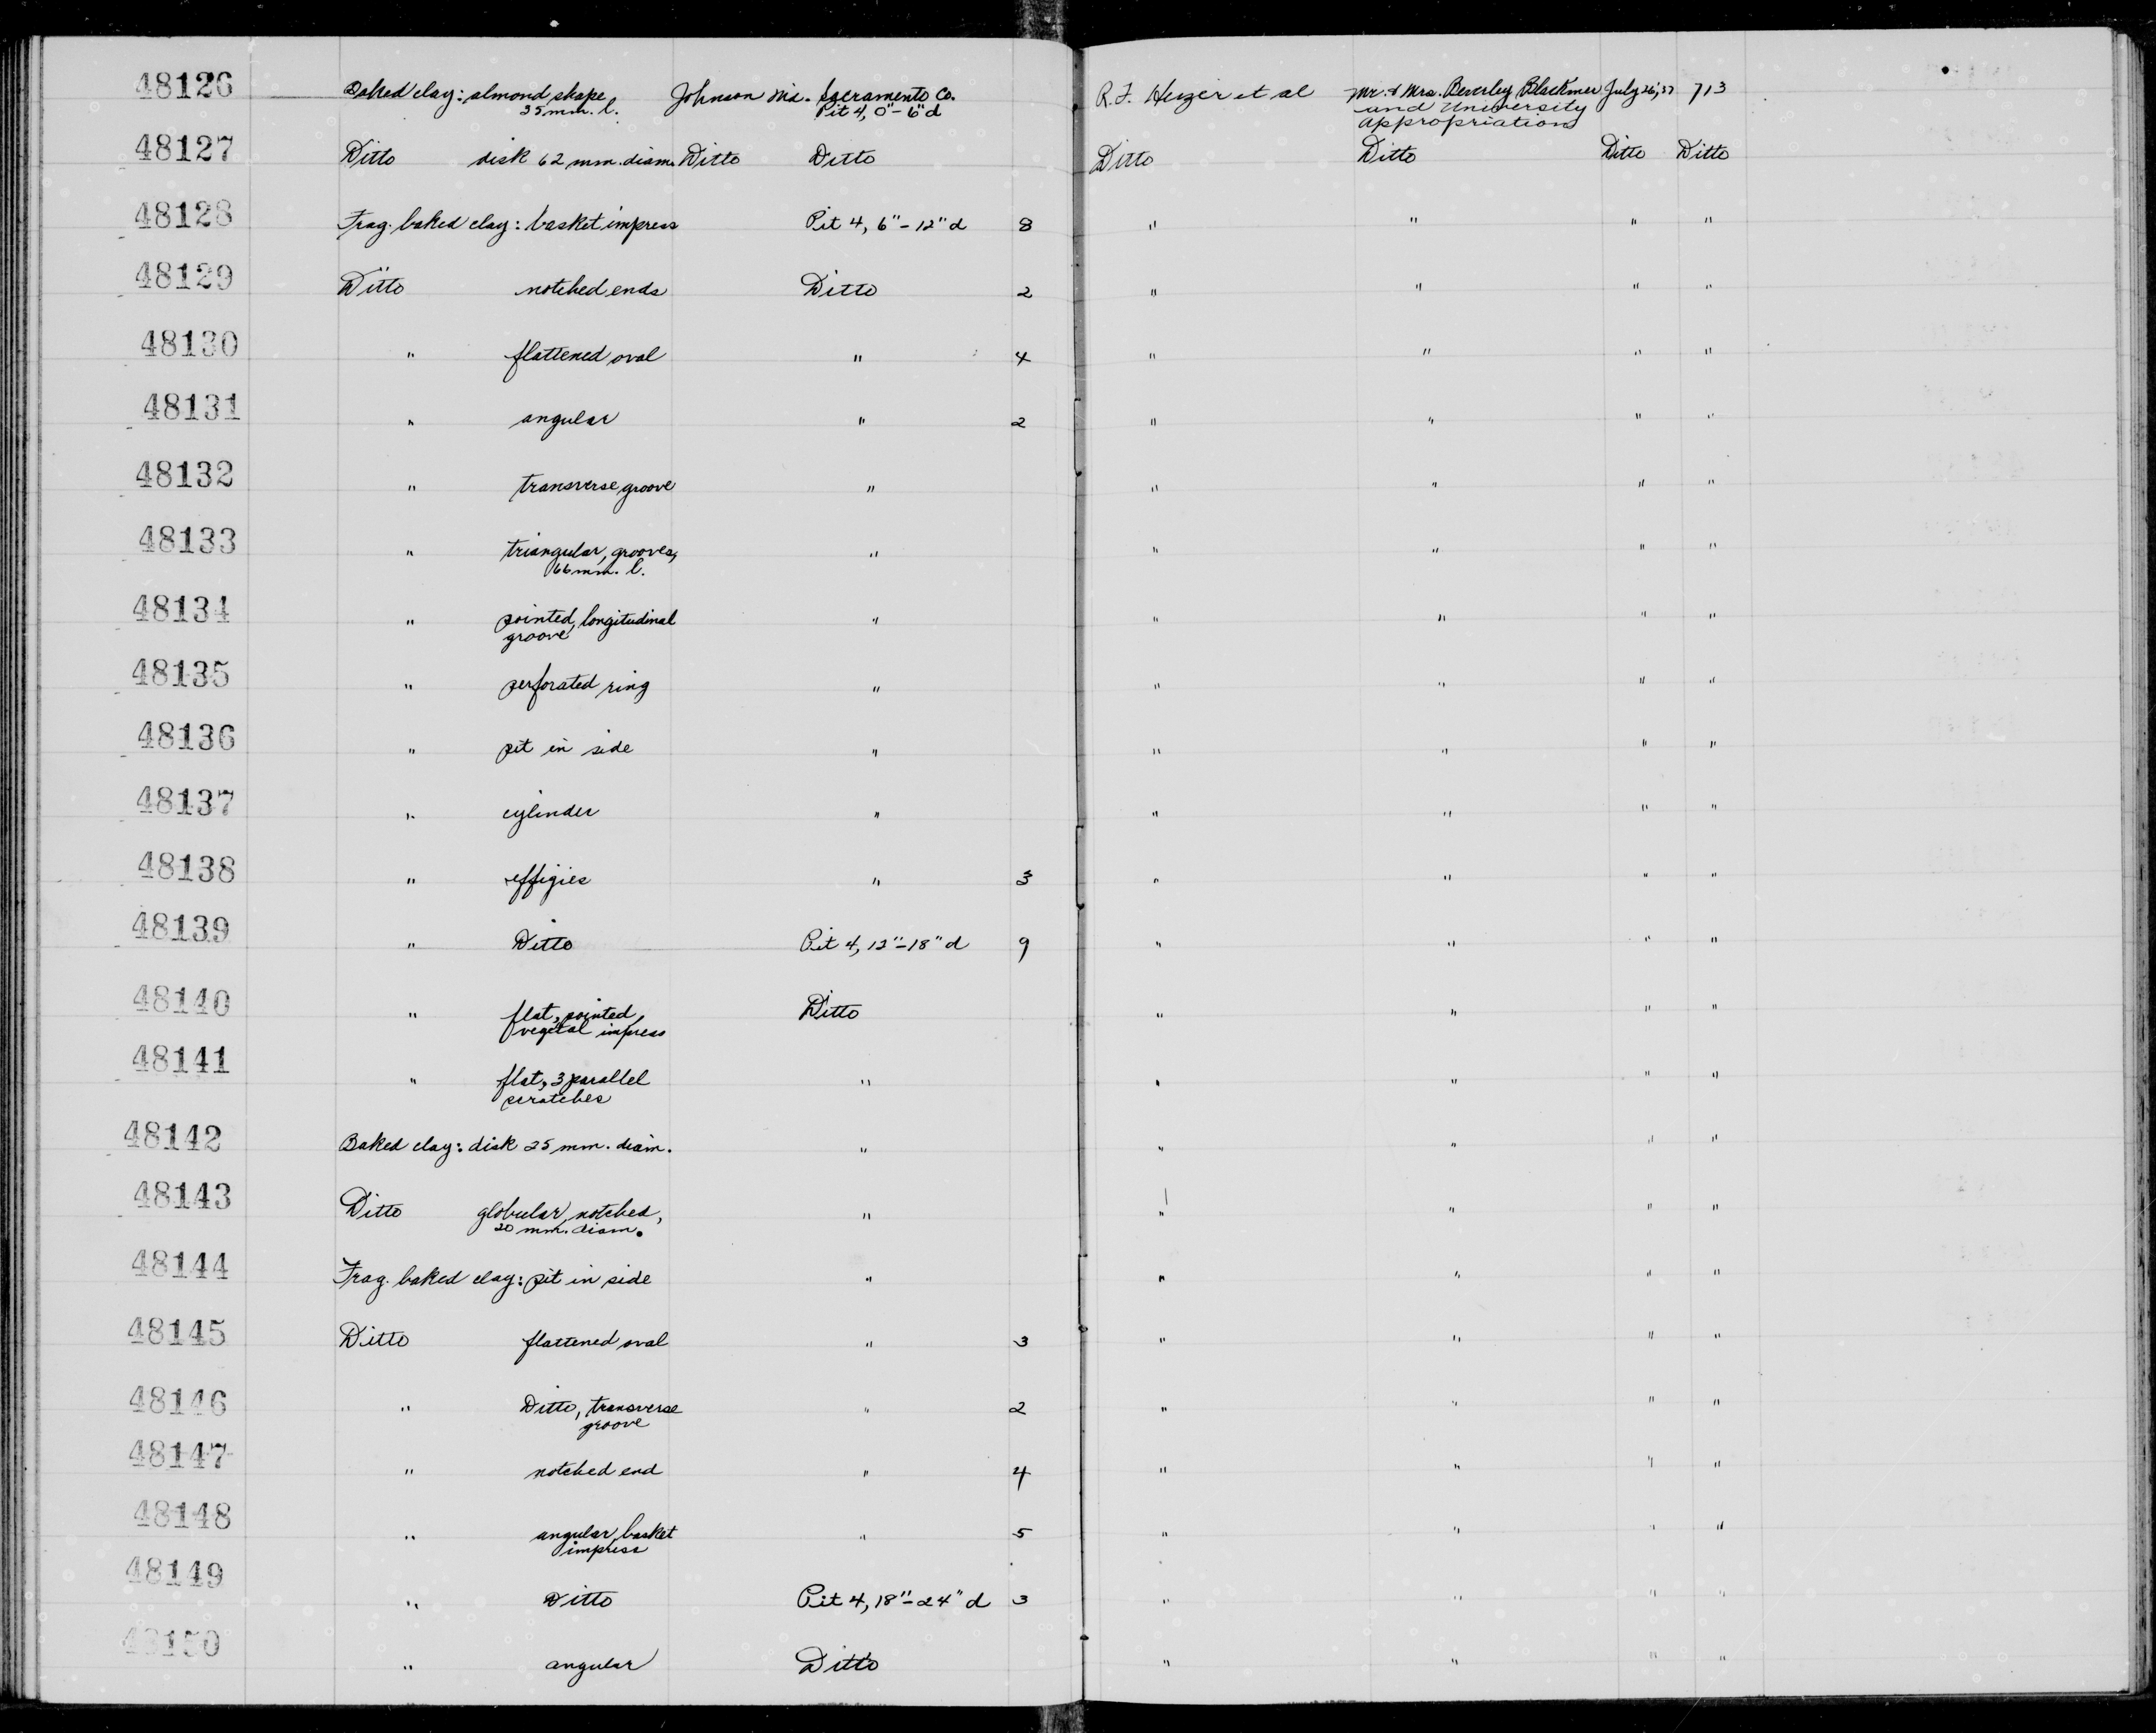 48126 Baked clay: almond shape, Johnson Md. Sacramento Co. R.F. Heizer et al Mr. & Mrs. Beverley Blackmer July 26, '37 713
35 mm. l. Pit 4, 0"-6" d and University
Appropriations
48127 Ditto disk 62 mm. diam. Ditto Ditto Ditto Ditto Ditto Ditto
48128 Frag. baked clay: basket impress Pit 4, 6"-12" d 8 " " " "
48129 Ditto notched ends Ditto 2 " " " "
48130 " flattened oval " 4 " " " "
48131 " angular " 2 " " " "
48132 " transverse groove " " " " "
48133 " triangular, grooves, " " " " "
66 mm. l.
48134 " pointed, longitudinal " " " " "
groove
48135 " perforated ring " " " " "
48136 " pit in side " " " " "
48137 " cylinder " " " " "
48138 " effigies " 3 " " " "
48139 " Ditto Pit 4, 12"-18" d 9 " " " "
48140 " flat, pointed, Ditto " " " "
vegetal impress
48141 " flat, 3 parallel " " " " "
scratches
48142 Baked clay: disk 25 mm. diam. " " " " "
48143 Ditto globular, notched, " " " " "
20 mm. diam.
48144 Frag. baked clay: pit in side " " " " "
48145 Ditto flattened oval " 3 " " " "
48146 " Ditto, transverse " 2 " " " "
groove
48147 " notched end " 4 " " " "
48148 " angular, basket " 5 " " " "
impress
48149 " Ditto Pit 4, 18"-24" d 3 " " " "
48150 " angular Ditto " " " "